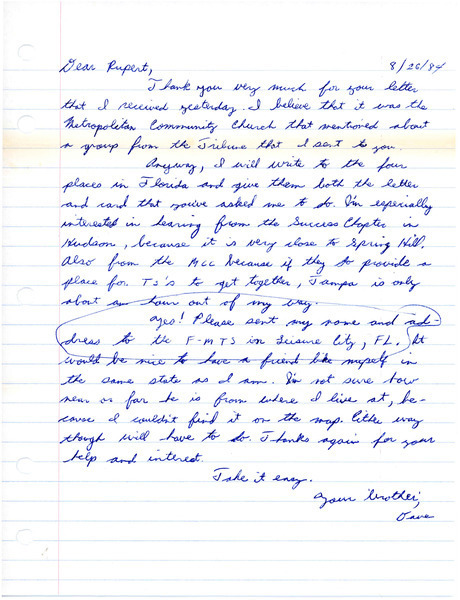 Dear Rupert, 8/26/84
Thank you very much for your letter
that I received yesterday. I believe that it was the
Metropolitan Community Church that mentioned about
a group from the Tribune that I sent to you.
Anyway, I will write to the four
places in Florida and give them both the letter
and card that you've asked me to do. I'm especially
interested in hearing from the Success Chapter in
Hudson, because it is very close to Spring Hill.
Also from the MCC because if they do provide a
place for TS's to get together, Tampa is only
about an hour out of my way.
Yes! Please sent my name and ad-
dress to the F-MTS in Leisure City, FL. It
would be nice to have a friend like myself in
the same state as I am. I'm not sure how
near or far he is from where I live at, be-
cause I couldn't find it on the map. Either way
though will have to do. Thanks again for your
help and interest.
Take it easy.
Your brother,
Dave